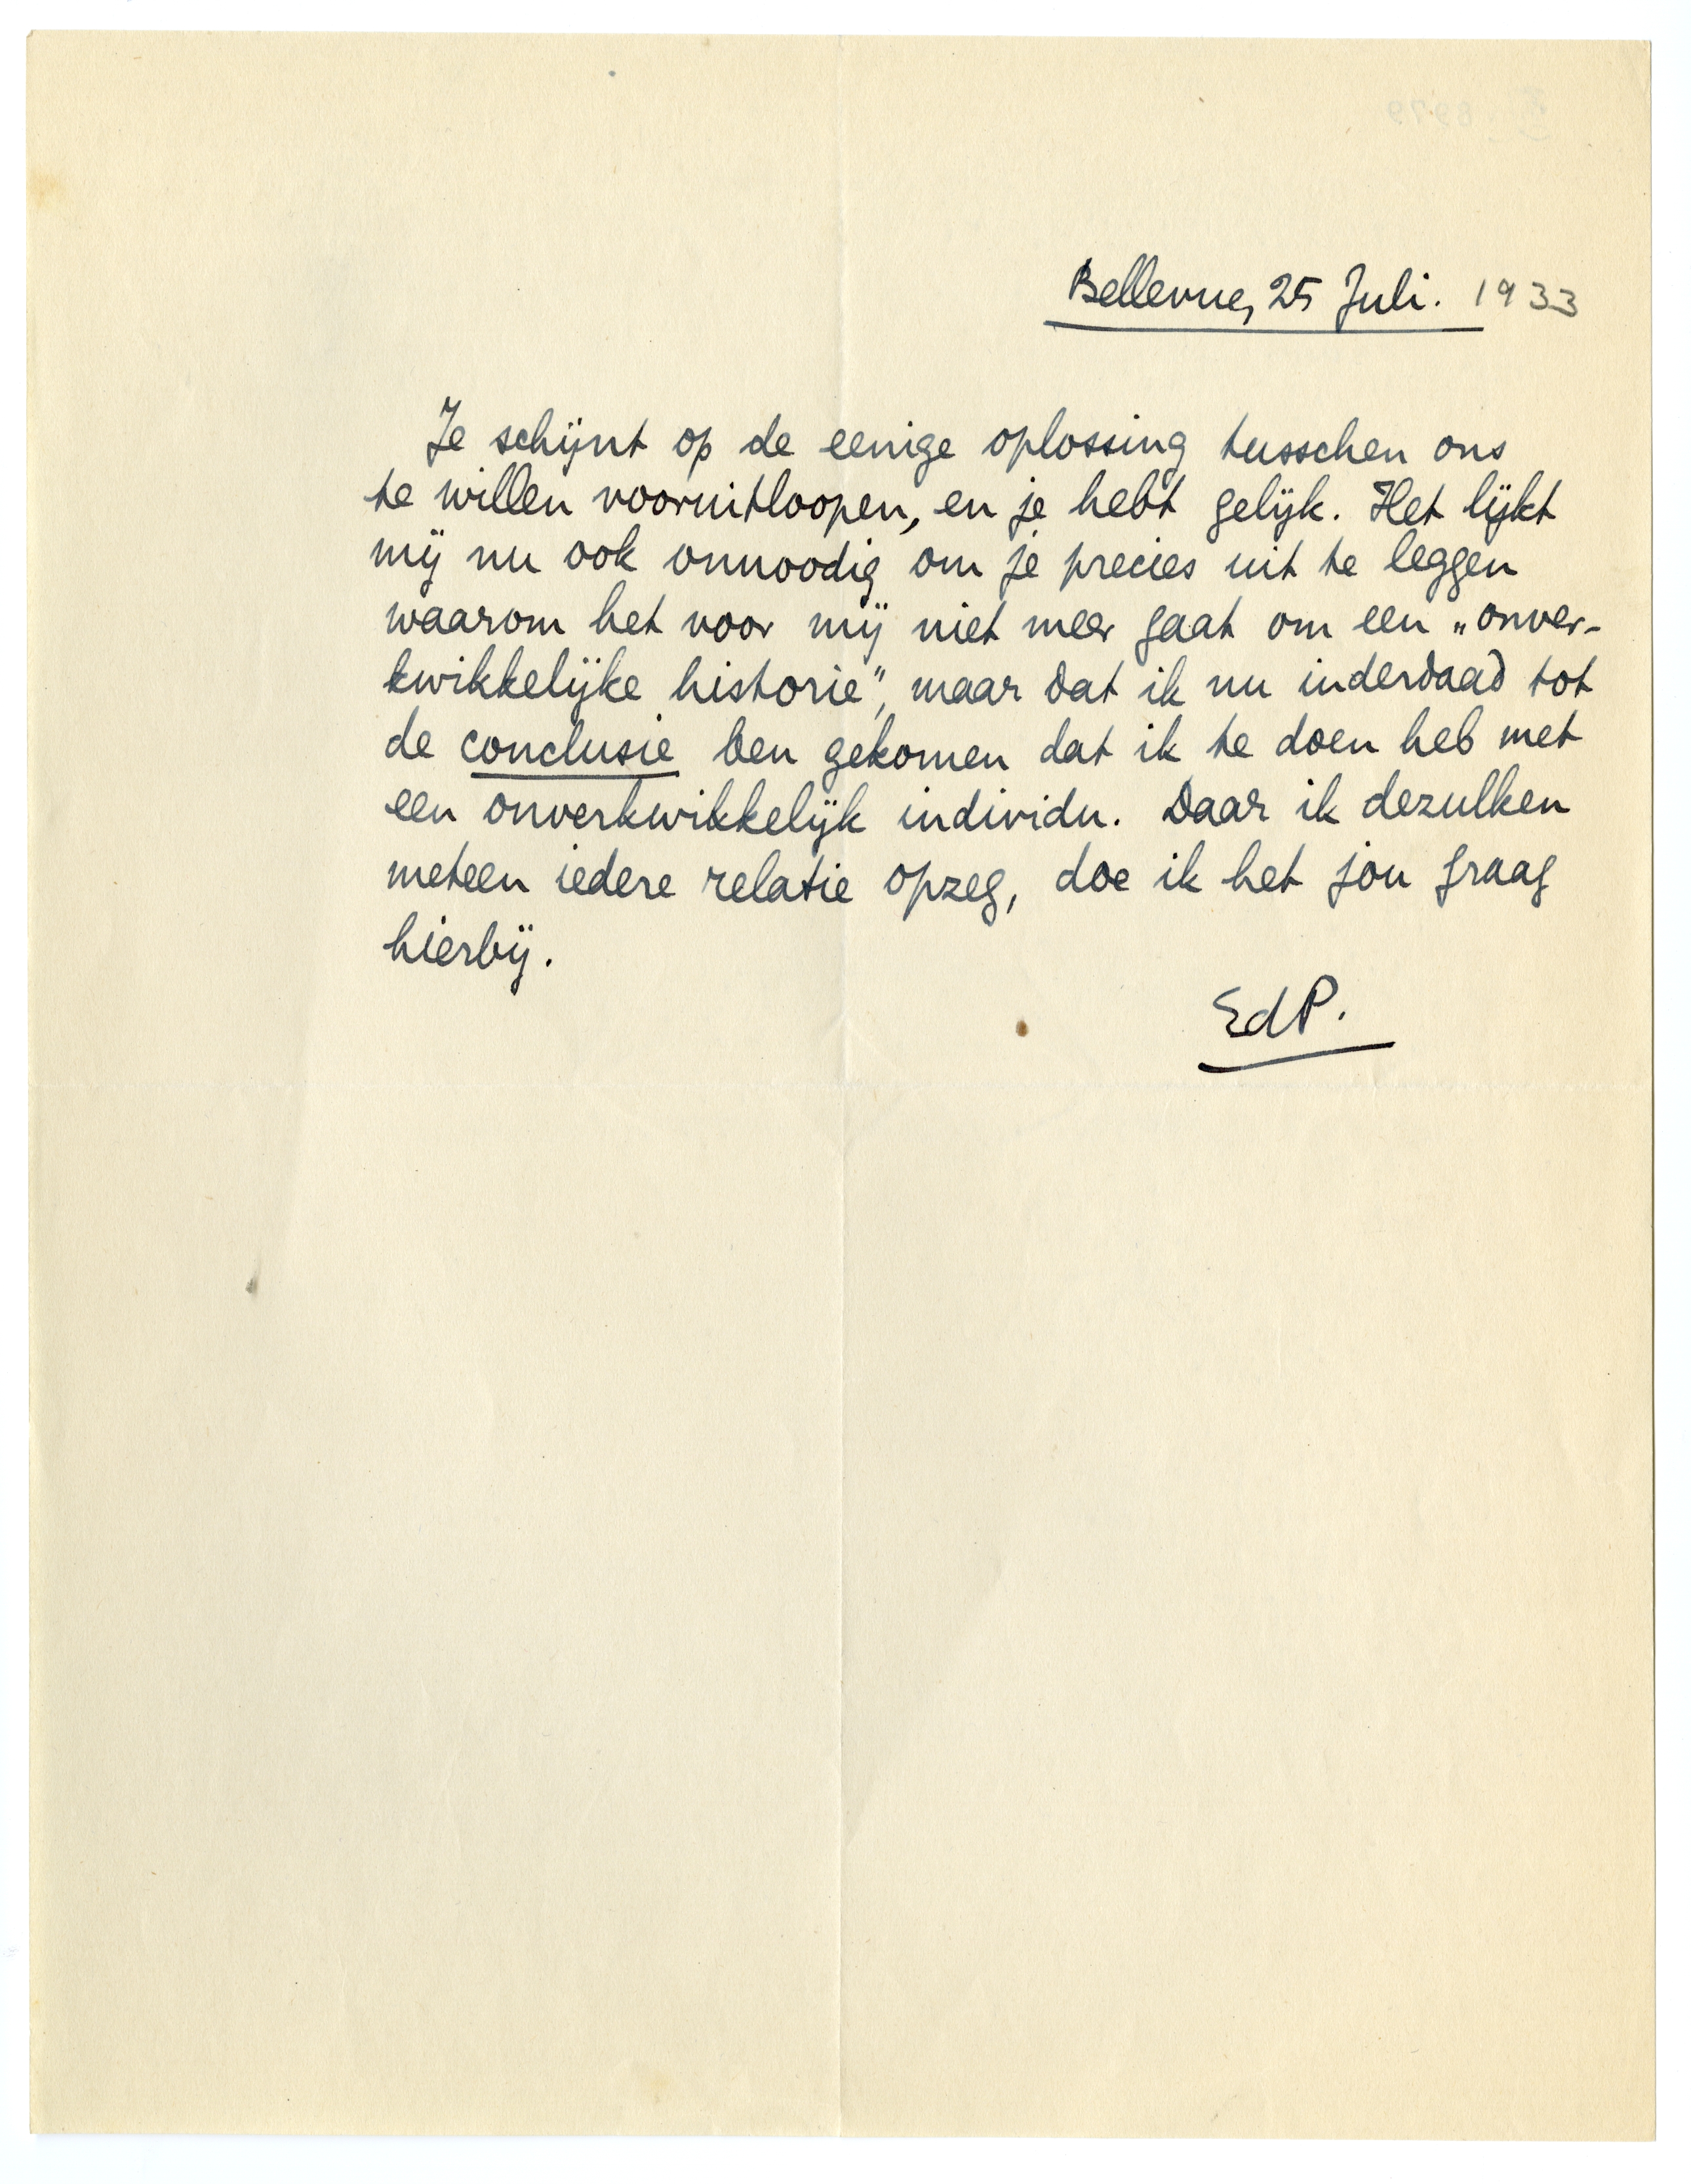 Bellevue, 25 Juli. 1933
Je schijnt op de eenige oplossing tusschen ons
te willen vooruitloopen, en je hebt gelijk. Het lijkt
mij nu ook onnoodig om je precies uit te leggen
waarom het voor mij niet meer gaat om een „onver-
kwikkelijke historie", maar dat ik nu inderdaad tot
de conclusie ben gekomen dat ik te doen heb met
een onverkwikkelijk individu. Daar ik dezulken
meteen iedere relatie opzeg, doe ik het jou graag
hierbij.
EdP.